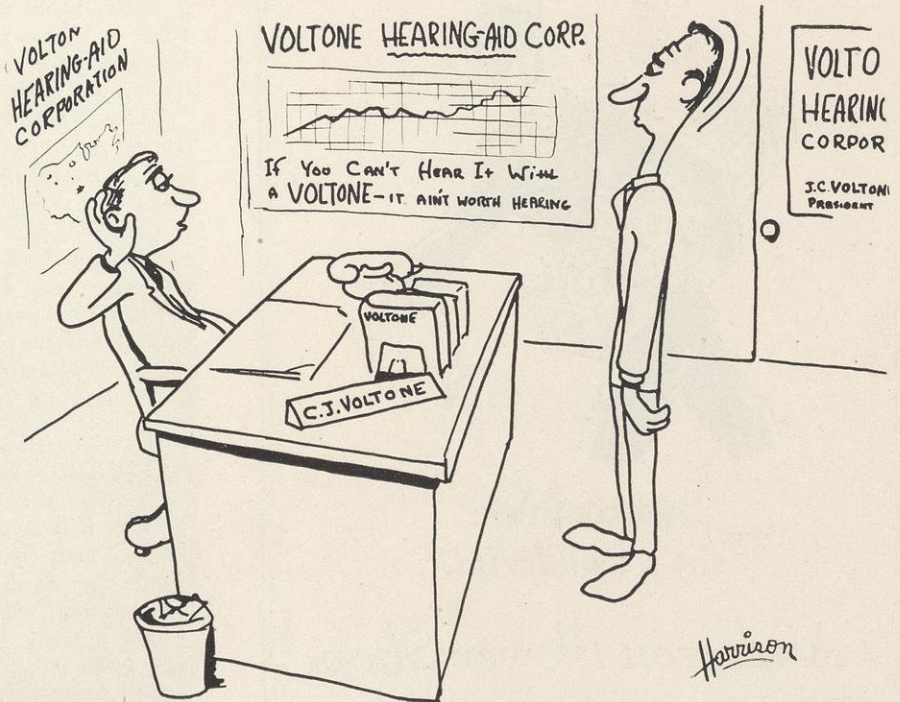 VOLTON
HEARING-AID
CORPORATION
VOLTONE HEARING-AID CORP.
If You Can't Hear It With
A VOLTONE - IT AIN'T WORTH HEARING
VOLTO
HEARING
CORPOR
J.C. VOLTON
PRESIDENT
VOLTONE
C.J. VOLTONE
Harrison